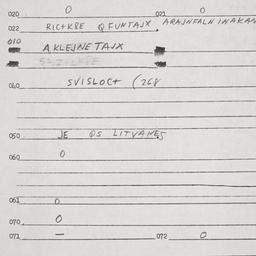 020 0 021 0
022 RICHKRE QFUNTAJX ARAJNFALN INAKAN
010 AKLEJNETAJX
040 SVISLOCH (268
050 JE QS LITVANES
060 0
061 0
070 0
071 — 072 0